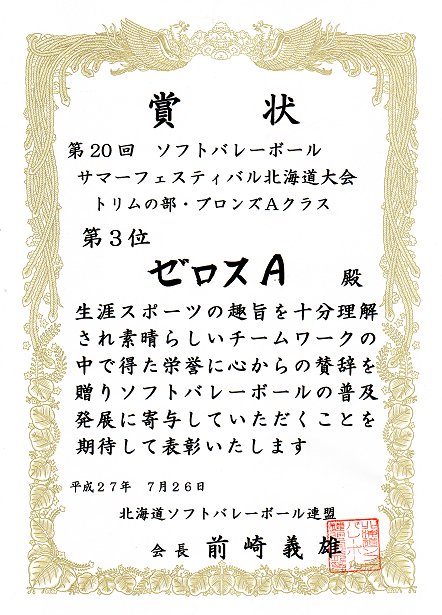 賞状
第20回 ソフトバレーボール
サマーフェスティバル北海道大会
トリムの部・ブロンズAクラス
第3位
ゼロスA 殿
生涯スポーツの趣旨を十分理解
され素晴らしいチームワークの
中で得た栄誉に心からの賛辞を
贈りソフトバレーボールの普及
発展に寄与していただくことを
期待して表彰いたします
平成27年 7月26日
北海道ソフトバレーボール連盟
会長 前崎義雄